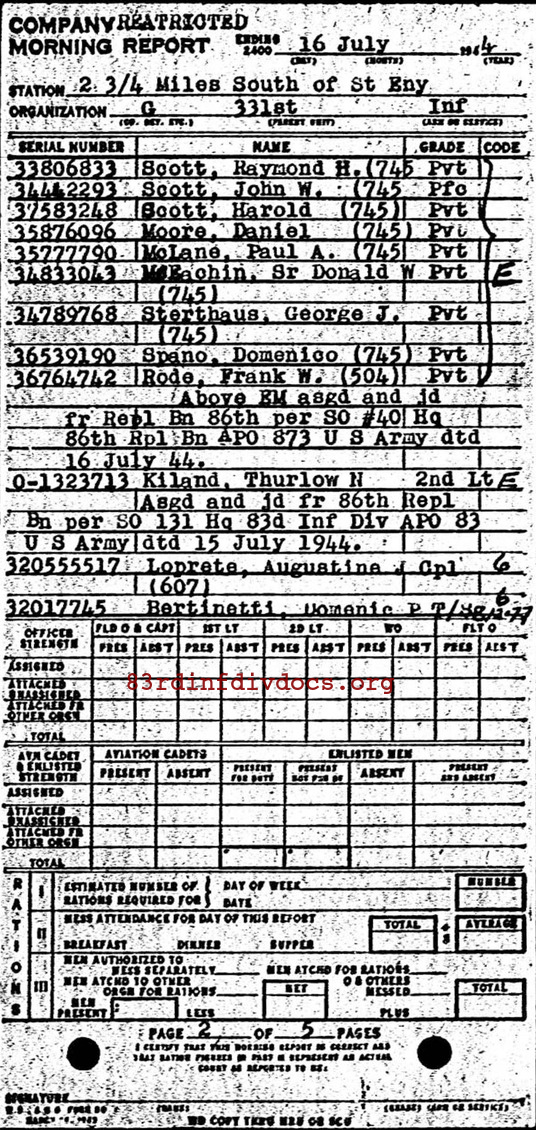 COMPANY RESTRICTED
MORNING REPORT ENDING 2400 16 July 1944
(DAY) (MONTH) (YEAR)
STATION 2 3/4 Miles South of St Eny
ORGANIZATION G 331st Inf
(CO. DET. ETC.) (PARENT UNIT) (ARM OR SERVICE)
SERIAL NUMBER NAME GRADE CODE
33806833 Scott, Raymond H. (745 Pvt
34442293 Scott, John W. (745 Pfc
37583248 Scott, Harold (745) Pvt
35876096 Moore, Daniel (745) Pvt
35777790 McLane, Paul A. (745 Pvt
34833043 McEachin, Sr Donald W Pvt E
(745)
34789768 Sterthaus, George J. Pvt
(745)
36539190 Spano, Domenico (745) Pvt
36764742 Rode, Frank W. (504) Pvt
Above EM asgd and jd
fr Repl Bn 86th per SO #40 Hq
86th Rpl Bn APO 873 U S Army dtd
16 July 44.
O-1323713 Kiland, Thurlow N 2nd Lt E
Asgd and jd fr 86th Repl
Bn per SO 131 Hq 83d Inf Div APO 83
U S Army dtd 15 July 1944.
320555517 Loprete, Augustine J Cpl 6
(607)
6
32017745 Bertinetti, Domenic P T/Sg
OFFICER STRENGTH FLD O & CAPT 1ST LT 2D LT WO FLT O
PRES ABST PRES ABST PRES ABST PRES ABST PRES ABST
ASSIGNED
ATTACHED UNASSIGNED
83rdinfdivdocs.org
ATTACHED FR OTHER ORGN
TOTAL
AVN CADET & ENLISTED STRENGTH AVIATION CADETS ENLISTED MEN
PRESENT ABSENT PRESENT FOR DUTY PRESENT NOT FOR DY ABSENT PRESENT AND ABSENT
ASSIGNED
ATTACHED UNASSIGNED
ATTACHED FR OTHER ORGN
TOTAL
RATIONS
I ESTIMATED NUMBER OF RATIONS REQUIRED FOR DAY OF WEEK DATE NUMBER
II MESS ATTENDANCE FOR DAY OF THIS REPORT TOTAL ÷3 AVERAGE
BREAKFAST DINNER SUPPER
III MEN AUTHORIZED TO MESS SEPARATELY MEN ATCHD FOR RATIONS
MEN ATCHD TO OTHER ORGN FOR RATIONS NET & OTHERS MESSED TOTAL
MEN PRESENT LESS PLUS
PAGE 2 OF 5 PAGES
I CERTIFY THAT THIS MORNING REPORT IS CORRECT AND
THAT RATION FIGURES IN PART III REPRESENT AN ACTUAL
COUNT AS REPORTED TO ME:
SIGNATURE
(NAME) (GRADE) (ARM OR SERVICE)